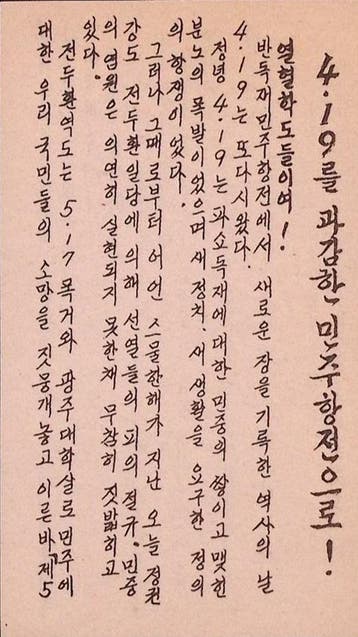 4·19를 과감한 민주항전으로!
열혈학도들이여!
반독재민주항전에서 새로운 장을 기록한 역사의 날
4·19는 또다시 왔다.
정녕 4·19는 파쇼독재에 대한 민중의 쌓이고 맺힌
분노의 폭발이었으며 새 정치, 새 생활을 요구한 정의
의 항쟁이었다.
그러나 그때로부터 어언 스물한해가 지난 오늘 정권
강도 전두환일당에 의해 선열들의 피의 절규, 민중
의 염원은 의연히 실현되지 못한채 무참히 짓밟히고
있다.
전두환역도는 5·17폭거와 광주대학살로 민주에
대한 우리 국민들의 소망을 짓뭉개놓고 이른바 「제5